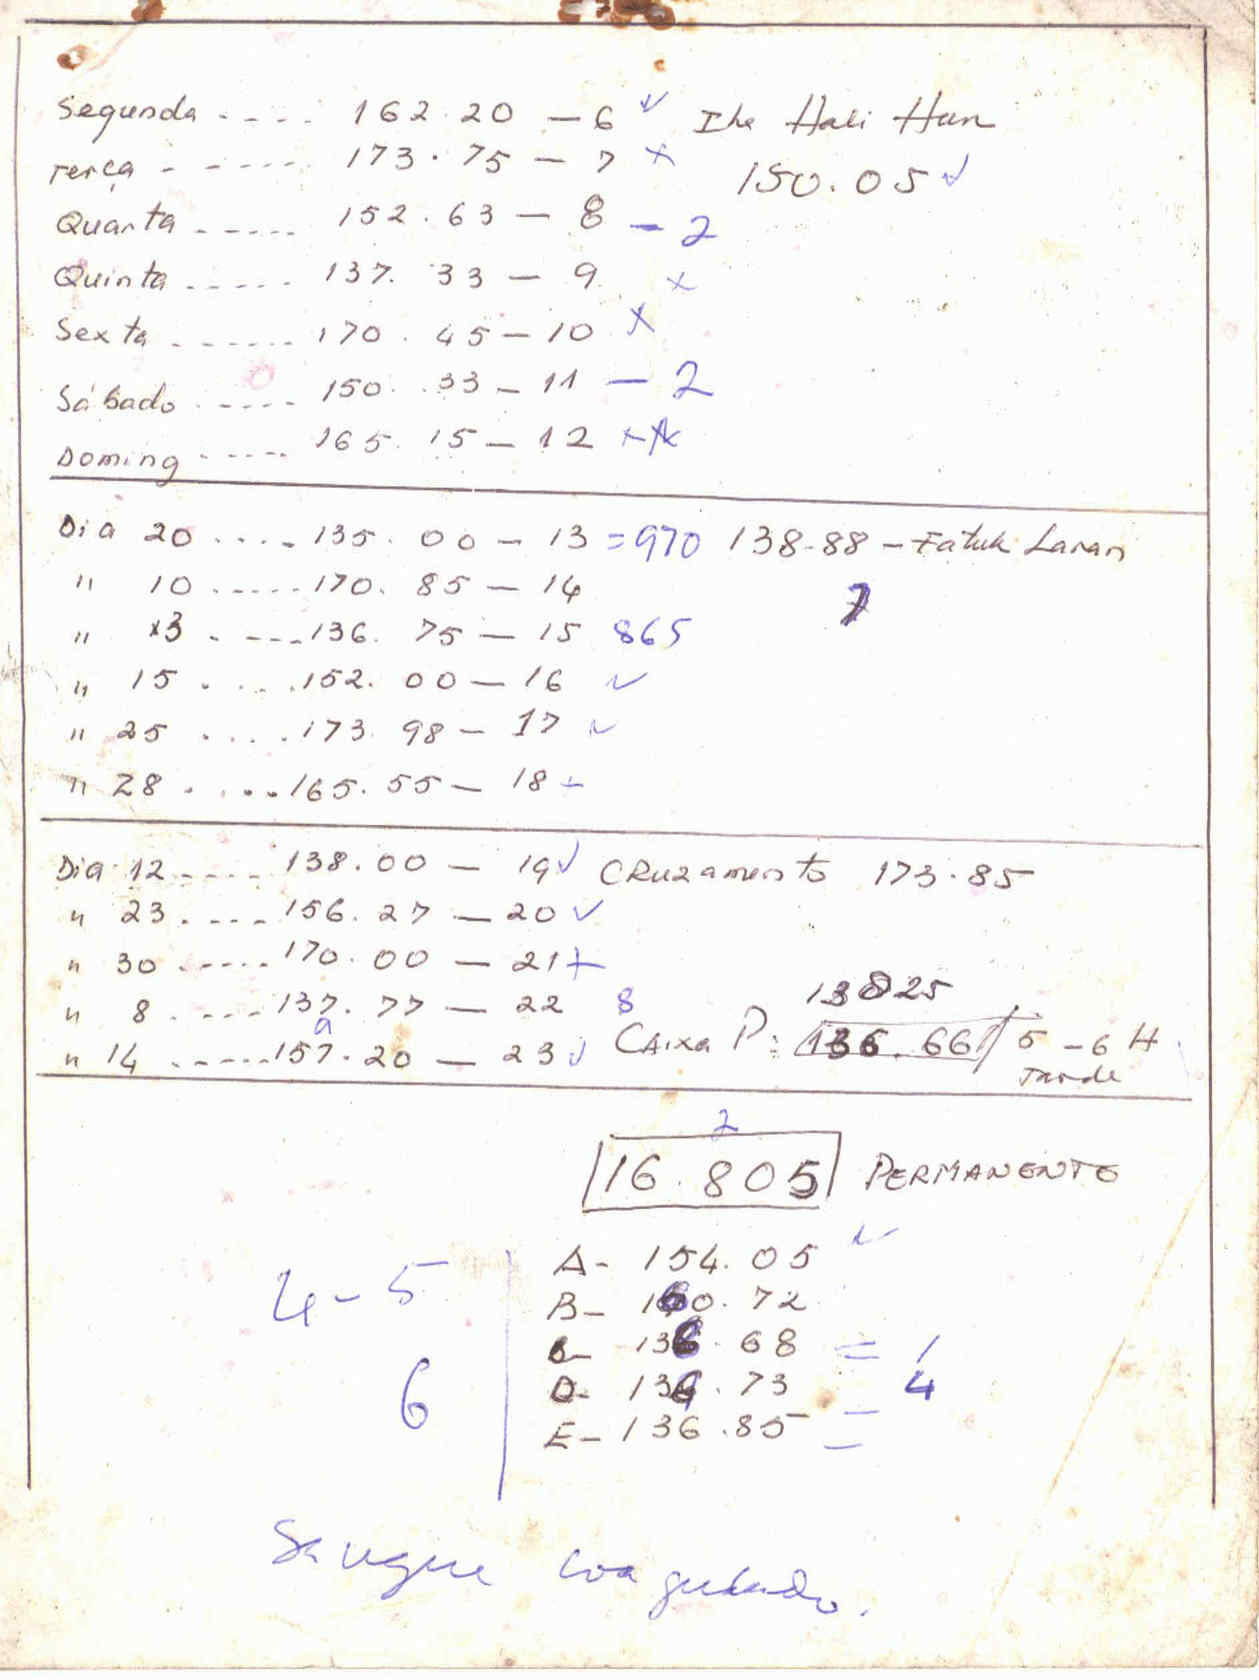 Segunda .... 162.20 - 6 ✓ Ihe Hali Hun
Terça ...... 173.75 - 7 x 150.05 ✓
Quarta ..... 152.63 - 8 - 2
Quinta ..... 137.33 - 9 x
Sexta ...... 170.45 - 10 x
Sábado ..... 150.33 - 11 - 2
Doming ..... 165.15 - 12
Dia 20 .... 135.00 - 13 = 970 138-88 - Fatuk Laran
" 10 ..... 170.85 - 14 7
" 13 .... 136.75 - 15 865
" 15 .... 152.00 - 16 ✓
" 25 .... 173.98 - 17 ✓
" 28 .... 165.55 - 18 -
Dia 12 .... 138.00 - 19 ✓ CRuzamento 173.85
" 23 .... 156.27 - 20 ✓
" 30 ..... 170.00 - 21 +
" 8 .... 137.77 - 22 8 13825
" 14 ..... 157.20 - 23 ✓ CAixa P: 136.66 5 - 6 H
a
Tarde
2
16.805 PERMANENTE
A- 154.05 ✓
4-5
B- 160.72
138.68 = 1
6
D- 139.73 4
E- 136.85
Sangue coagulado.